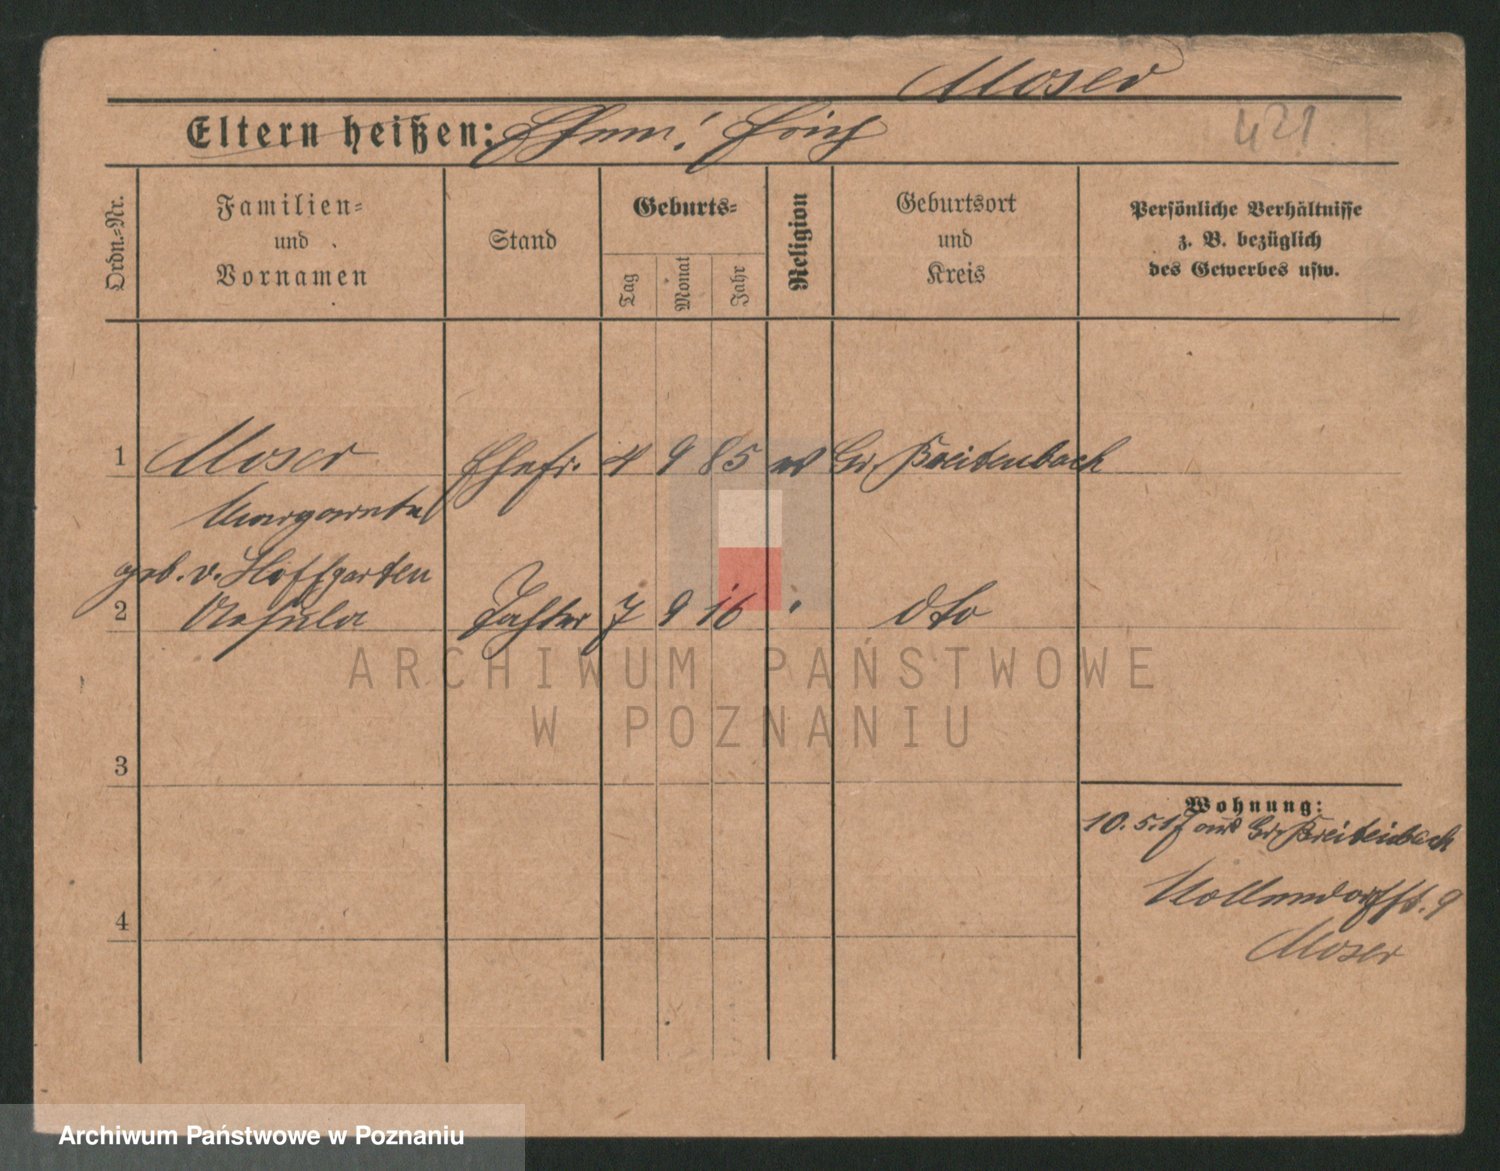 Moser
Eltern heißen: Ehem! Erich
421
Ordn.-Nr.
Familien-
und
Vornamen
Stand
Geburts-
Tag
Monat
Jahr
Religion
Geburtsort
und
Kreis
Persönliche Verhältnisse
z. B. bezüglich
des Gewerbes usw.
1 Moser Ehefr. 4 9 85 Gr. Breitenbach
Margarete
geb. v. Hoffgarten
2 Ursula Tochter 7 9 16 " dto
ARCHIWUM PAŃSTWOWE
W POZNANIU
3
Wohnung:
10. 5. 17 aus Gr. Breitenbach
Nollendorffst. 9
Moser
4
Archiwum Państwowe w Poznaniu